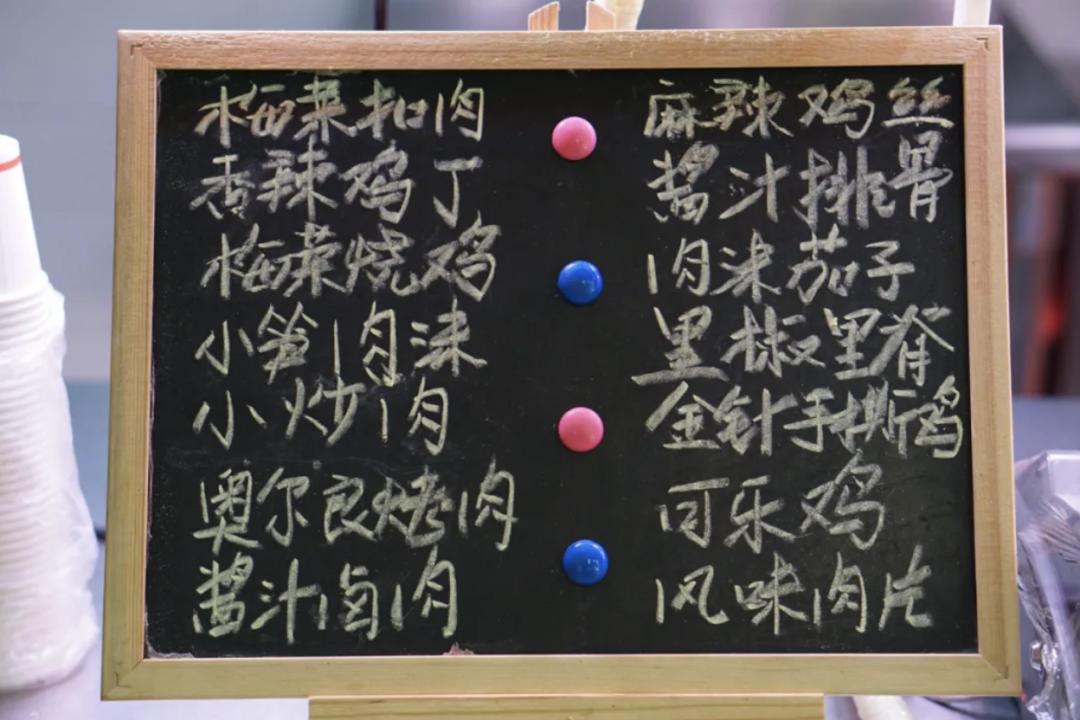 梅菜扣肉
香辣鸡丁
梅菜烧鸡
小笋肉沫
小炒肉
奥尔良烤肉
酱汁卤肉
麻辣鸡丝
酱汁排骨
肉沫茄子
黑椒里脊
金针手撕鸡
可乐鸡
风味肉片